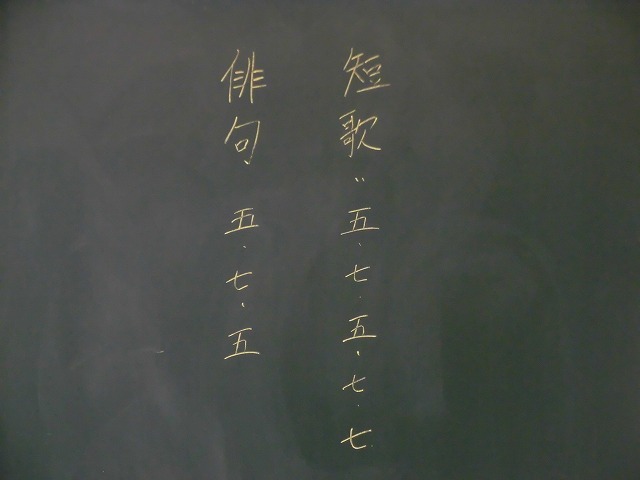 短歌‥五・七・五・七・七
俳句　五・七・五